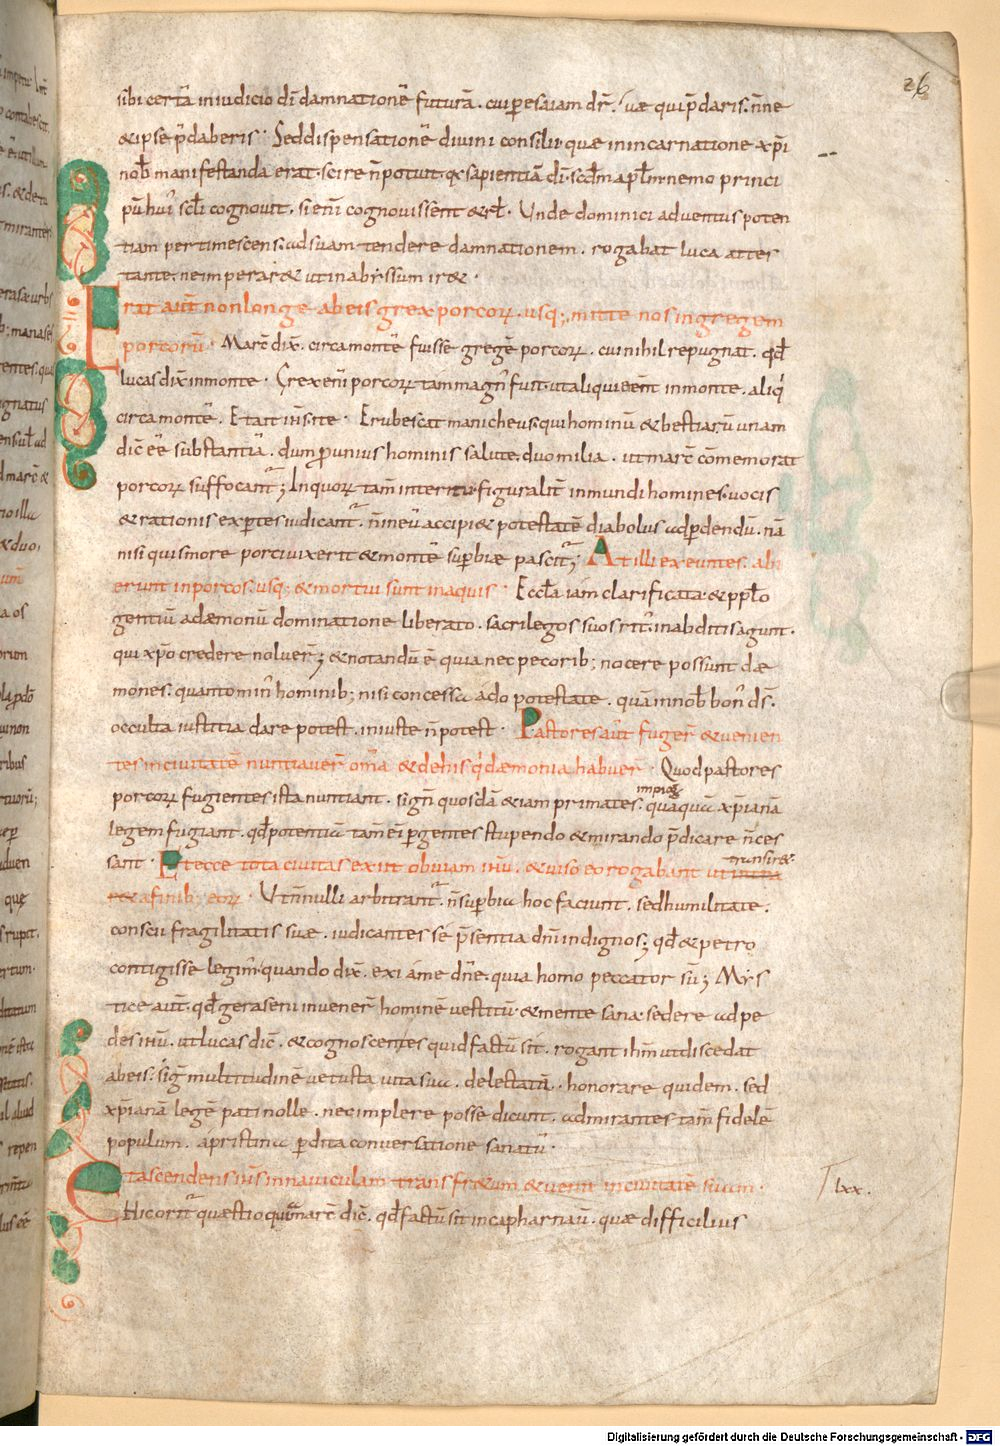 26
sibi certā in iudicio dī damnationē futurā. cui per esaiam dr̄. uæ qui p̄daris. ñne
& ipse p̄daberis. Sed dispensationē diuini consilii quæ in incarnatione xp̄i
nob̄ manifestanda erat. scire ñ potuit. qꝛ sapientiā dī. scd̄m apl̄m nemo princi
pū hui᾽ scl̄i cognouit. si enī cognouissent & rl̄. Unde dominici aduentus poten
tiam pertimescens. ad suam tendere damnationem. rogabat luca attes
tante. ne imperar& ut in abyssum ir&.
Erat aut̄ non longe ab eis grex porcoꝝ. usq; mitte nos in gregem
porcorū. Marc᾽ dix̄. circa montē fuisse gregē porcoꝝ. cui nihil repugnat. qd̄
lucas dix̄ in monte. Grex enī porcoꝝ tam magn᾽ fuit. ut aliqui eēnt in monte. aliq᾽
circa montē. Etant iñs. ite. Erubescat manicheus. qui hominū & bestiarū unam
dic̄ eē substantiā. dum p unius hominis salute. duo milia. ut marc᾽ cōmemorat
porcoꝝ suffocant᾽; In quoꝝ tam̄ interitu figuralit̄ inmundi homines. uocis
& rationis expertes iudicant᾽. ñ in eū accipi& potestatē diabolus ad p̄dendū. nā
nisi quis more porci uixerit & montē sup̄biæ pascit᾽; At illi exeuntes. abi
erunt in porcos. usq; & mortui sunt in aquis. Eccl̄a iam clarificata. & ppl̄o
gentiū a dæmonū dominatione liberato. sacrilegos suos rit᾽ in abditis agunt.
qui xp̄o credere noluer̄; & notandū ē quia nec pecorib; nocere possunt dæ
mones. quanto min᾽ hominib; nisi concessa a dō potestate. quā in nob̄ bon᾽ ds̄.
occulta iustitia dare potest. iniuste ñ potest. Pastores aut̄ fuger̄ & uenien
tes in ciuitatē nuntiauer̄ om̄a. & de his q᾽ dæmonia habuer̄. Quod pastores
impioꝝ
porcoꝝ fugientes ista nuntiant. sign̄ quosdā & iam primates. quaquā xp̄ianā
legem fugiant. qd̄ potentiā tam̄ ei᾽ p̄gentes stupendo & mirando p̄dicare ñces
sant. Et ecce tota ciuitas exiit obuiam iħu. & uiso eo rogabant ut intra
transir&
r& a finib; eoꝝ. Ut ñnulli arbitrant᾽. ñ sup̄bia hoc faciunt. sed humilitate.
conscii fragilitatis suæ. iudicantes se p̄sentia dn̄i indignos; qd̄ & petro
contigisse legim᾽ quando dix̄. exi a me dn̄e. quia homo peccator sū; Mys
tice aut̄. qd̄ geraseni inuener̄ hominē uestitū & mente sana sedere ad pe
des iħu. ut lucas dic̄. & cognoscentes quid factū sit. rogant iħm ut discedat
ab eis. sig᾽ multitudinē uetusta uita sua. delectatā. honorare quidem. sed
xp̄ianā legē pati nolle. nec implere posse dicunt. admirantes tam̄ fidelē
populum. a pristina p̄dita conuersatione sanatū.
Et ascendens iħs in nauiculam transfr&um & uenit in ciuitatē suam.
Hic orit᾽ quæstio quom̄ marc᾽ dic̄. qd̄ factū sit in capharnaū. quæ difficilius
lxx.
Digitalisierung gefördert durch die Deutsche Forschungsgemeinschaft - DFG